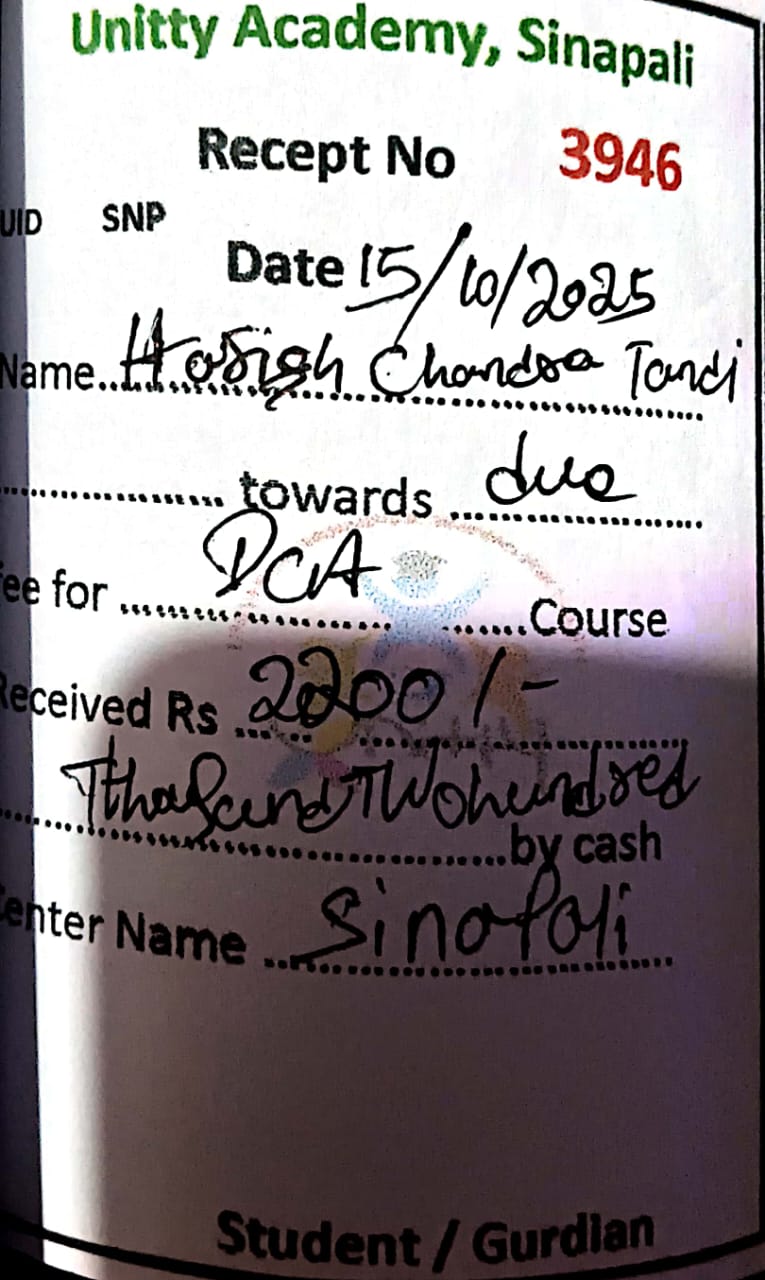 Unitty Academy, Sinapali
Recept No 3946
UID SNP
Date 15/10/2025
Name.. Harish Chandra Tandi
towards due
ee for DCA Course
Received Rs 2200/-
Tthasand TWO hundred
by cash
Center Name Sinapali
Student / Gurdian